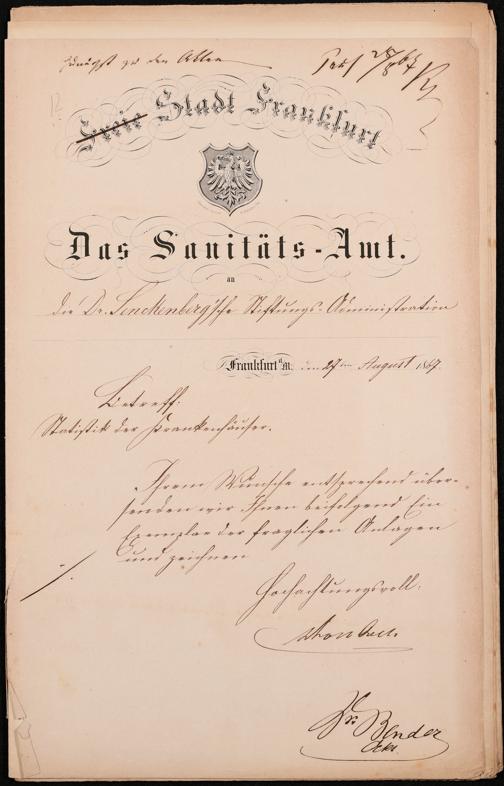 zunächst zu den Akten
Präs 28/8 67
Freie Stadt Frankfurt
Das Sanitäts-Amt.
an
die Dr. Senckenberg'sche Stiftungs-Administration
Frankfurt a/M. den 27ten August 1867.
Betreff:
Statistik der Krankenhäuser.
Ihrem Wunsche entsprechend über-
senden wir Ihnen beifolgend Ein
Exemplar der fraglichen Anlagen
und zeichnen
Hochachtungsvoll.
Dr. Bender